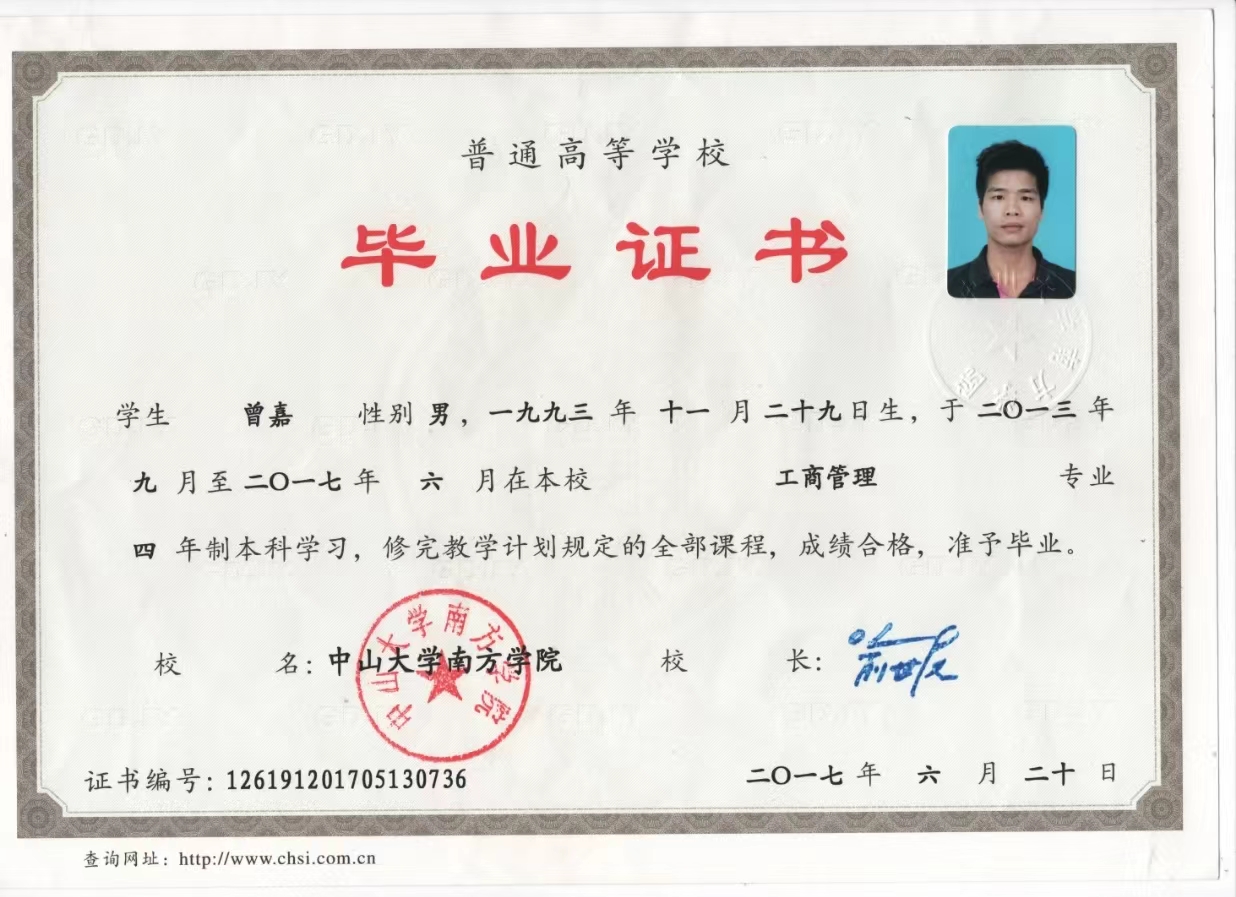 普通高等学校
毕业证书
学生 曾嘉 性别 男，一九九三 年 十一 月 二十九日生，于 二〇一三 年
九 月至 二〇一七 年 六 月在本校 工商管理 专业
四 年制本科学习，修完教学计划规定的全部课程，成绩合格，准予毕业。
校 名：中山大学南方学院 校 长：
中山大学南方学院
证书编号：126191201705130736 二〇一七 年 六 月 二十 日
查询网址：http://www.chsi.com.cn